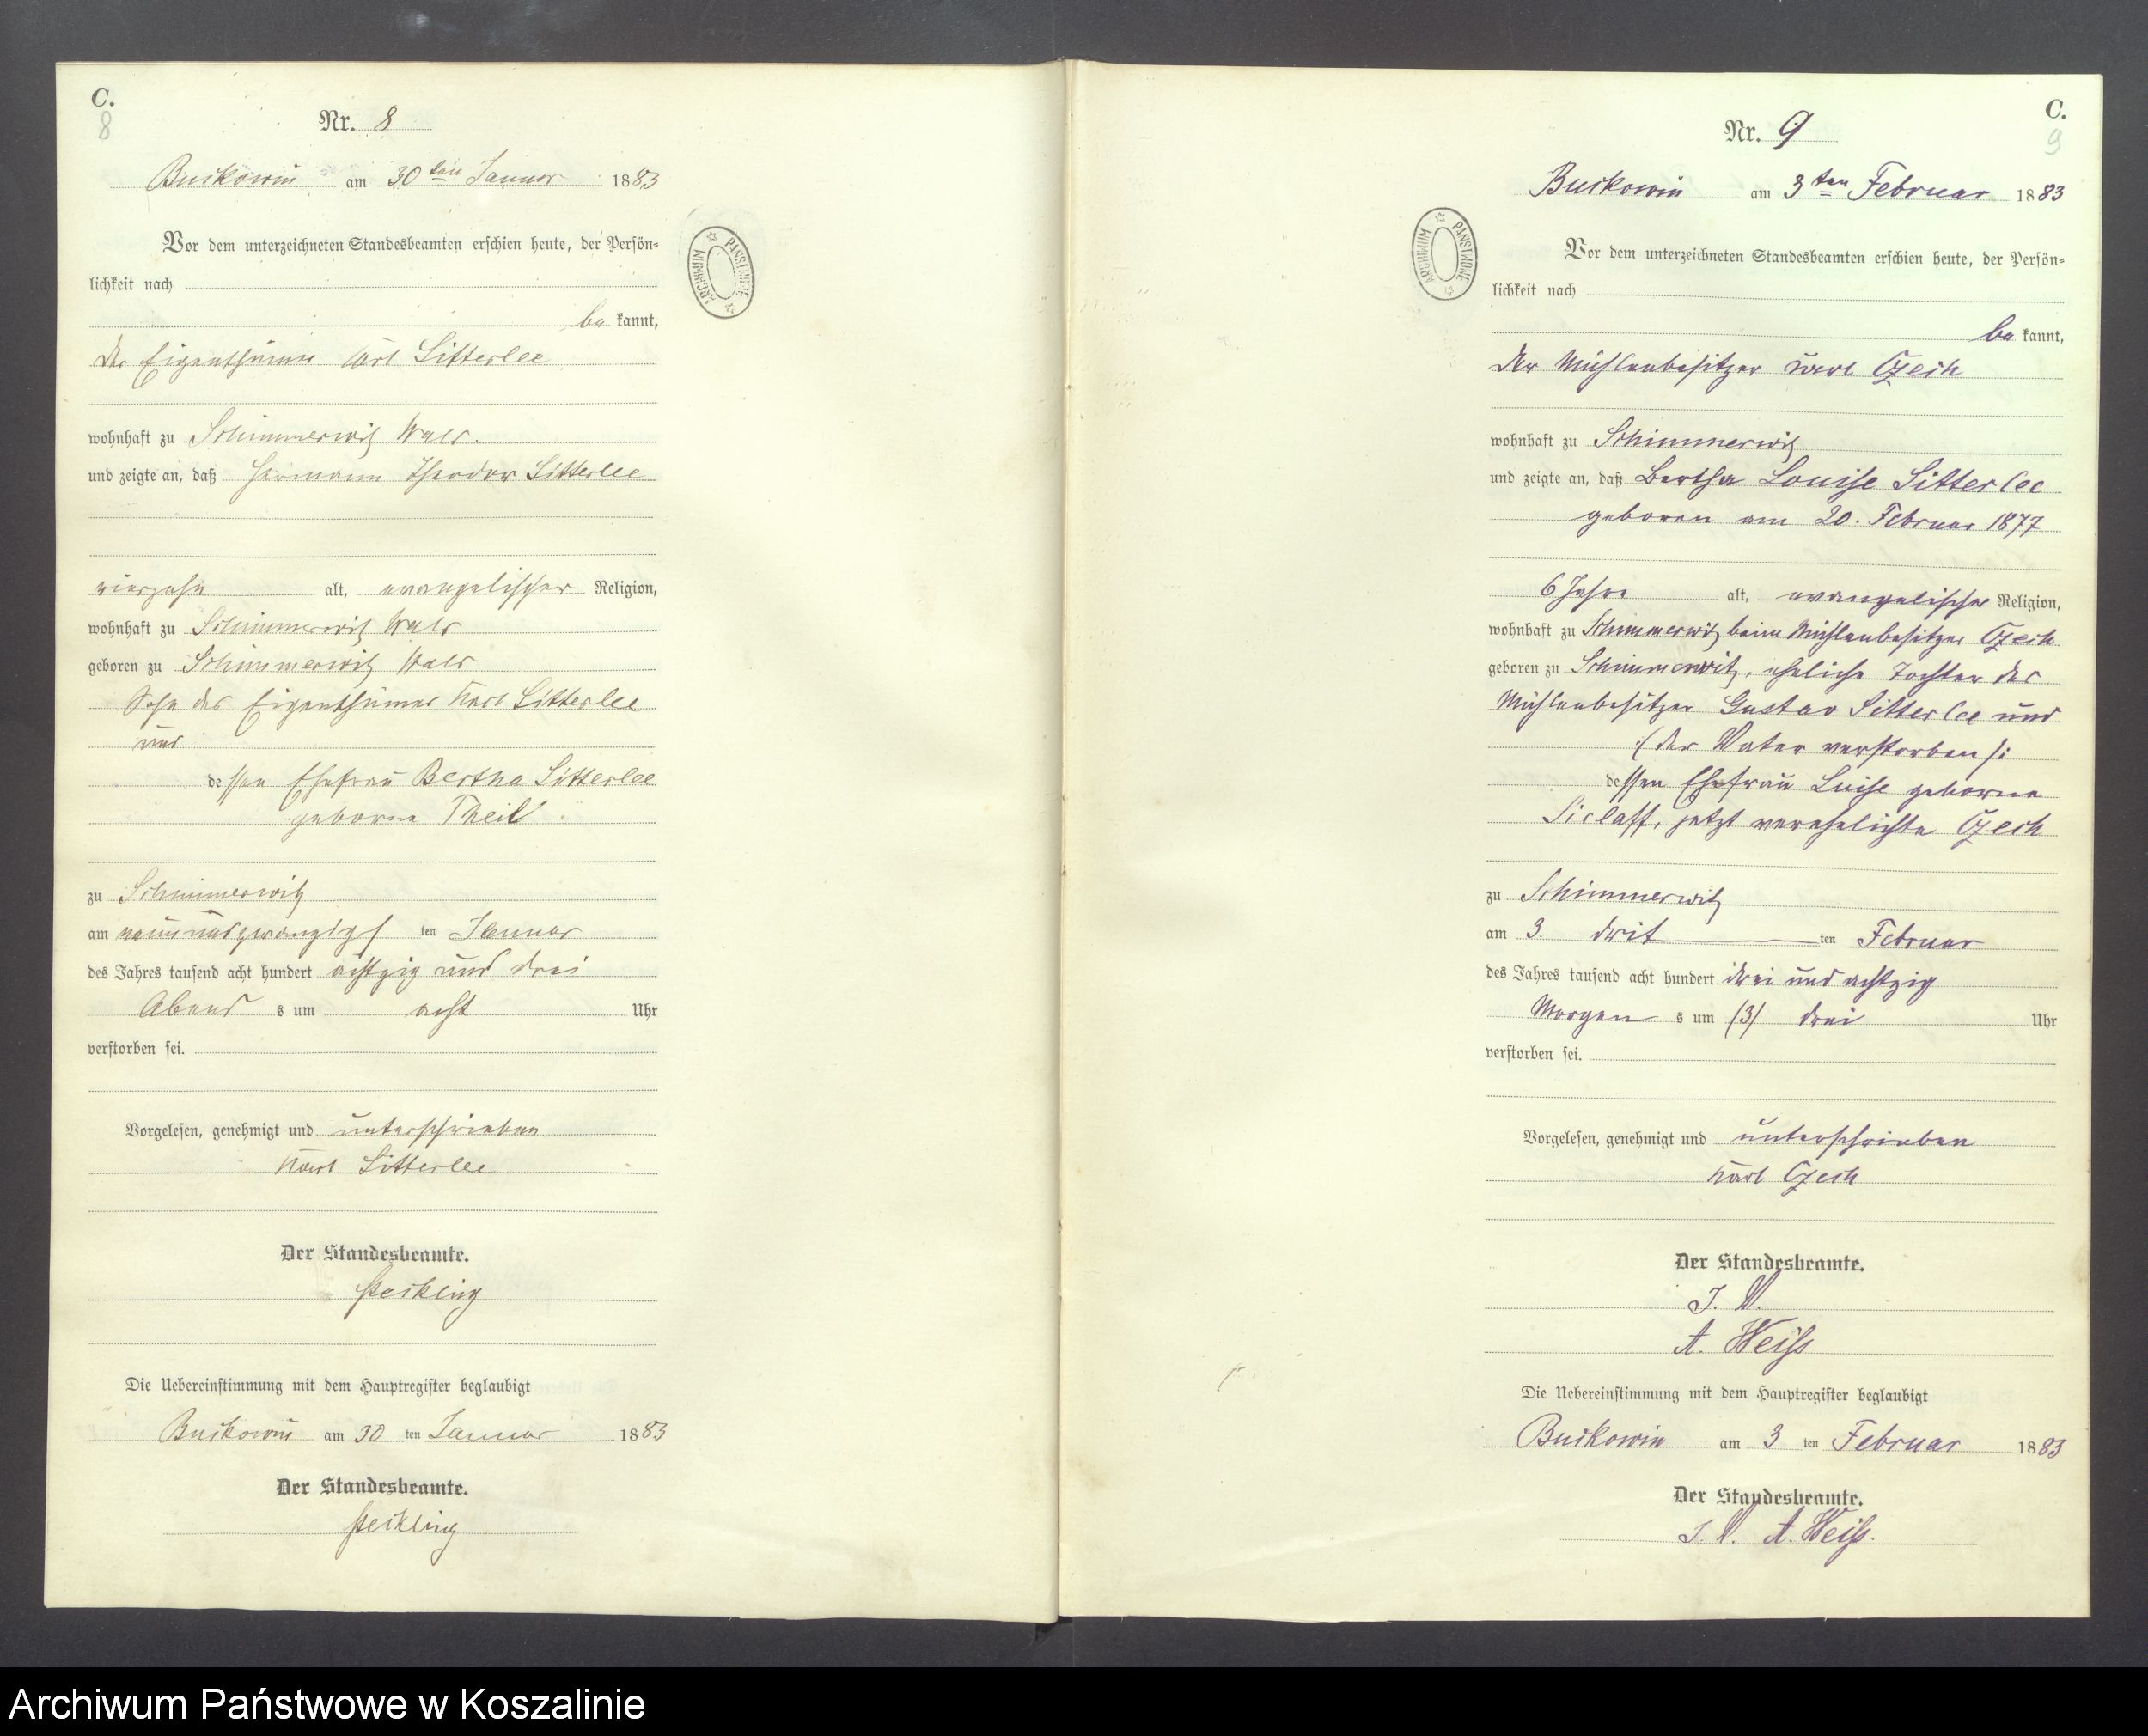 C.
8
Nr. 8
Buckowin am 30ten Januar 1883
Vor dem unterzeichneten Standesbeamten erschien heute, der Persön=
lichkeit nach
be kannt,
der Eigenthümer Karl Sitterlee
wohnhaft zu Schimmerwitz Wald.
und zeigte an, daß Hermann Theodor Sitterlee
vierzehn alt, evangelischer Religion,
wohnhaft zu Schimmerwitz Wald
geboren zu Schimmerwitz Wald
Sohn des Eigenthümer Karl Sitterlee
und
dessen Ehefrau Bertha Sitterlee
geborne Theil
zu Schimmerwitz
am neunundzwanzigst ten Januar
des Jahres tausend acht hundert achtzig und drei
Abend s um acht Uhr
verstorben sei.
Vorgelesen, genehmigt und unterschrieben
Karl Sitterlee
Der Standesbeamte.
Die Uebereinstimmung mit dem Hauptregister beglaubigt
Buckowin am 30 ten Januar 1883
Der Standesbeamte.
ARCHIWUM PAŃSTWOWE
C.
9
Nr. 9
Buckowin am 3ten Februar 1883
Vor dem unterzeichneten Standesbeamten erschien heute, der Persön=
lichkeit nach
be kannt,
der Mühlenbesitzer Karl Czech
wohnhaft zu Schimmerwitz
und zeigte an, daß Bertha Louise Sitterlee
geboren am 20. Februar 1877
6 Jahre alt, evangelischer Religion,
wohnhaft zu Schimmerwitz beim Mühlenbesitzer Czech
geboren zu Schimmerwitz, eheliche Tochter des
Mühlenbesitzer Gustav Sitterlee und
:/ der Vater verstorben /:
dessen Ehefrau Luise geborne
Siclaff, jetzt verehelichte Czech
zu Schimmerwitz
am 3. drit ten Februar
des Jahres tausend acht hundert drei und achtzig
Morgen s um (3) drei Uhr
verstorben sei.
Vorgelesen, genehmigt und unterschrieben
Karl Czech
Der Standesbeamte.
J. V.
A. Weiss
Die Uebereinstimmung mit dem Hauptregister beglaubigt
Buckowin am 3 ten Februar 1883
Der Standesbeamte.
J. V. A. Weiss.
ARCHIWUM PAŃSTWOWE
Archiwum Państwowe w Koszalinie